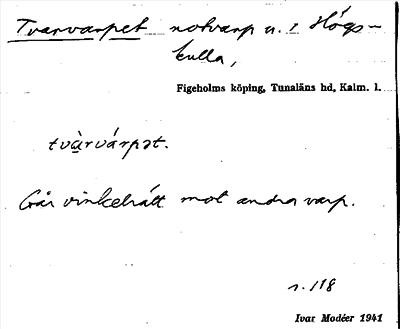 Tvarvarpet notvarp n. i Högs-
kulla,
Figeholms köping, Tunaläns hd, Kalm. l.
tvà̱rvárpət.
Går vinkelrätt mot andra varp.
s. 118
Ivar Modéer 1941